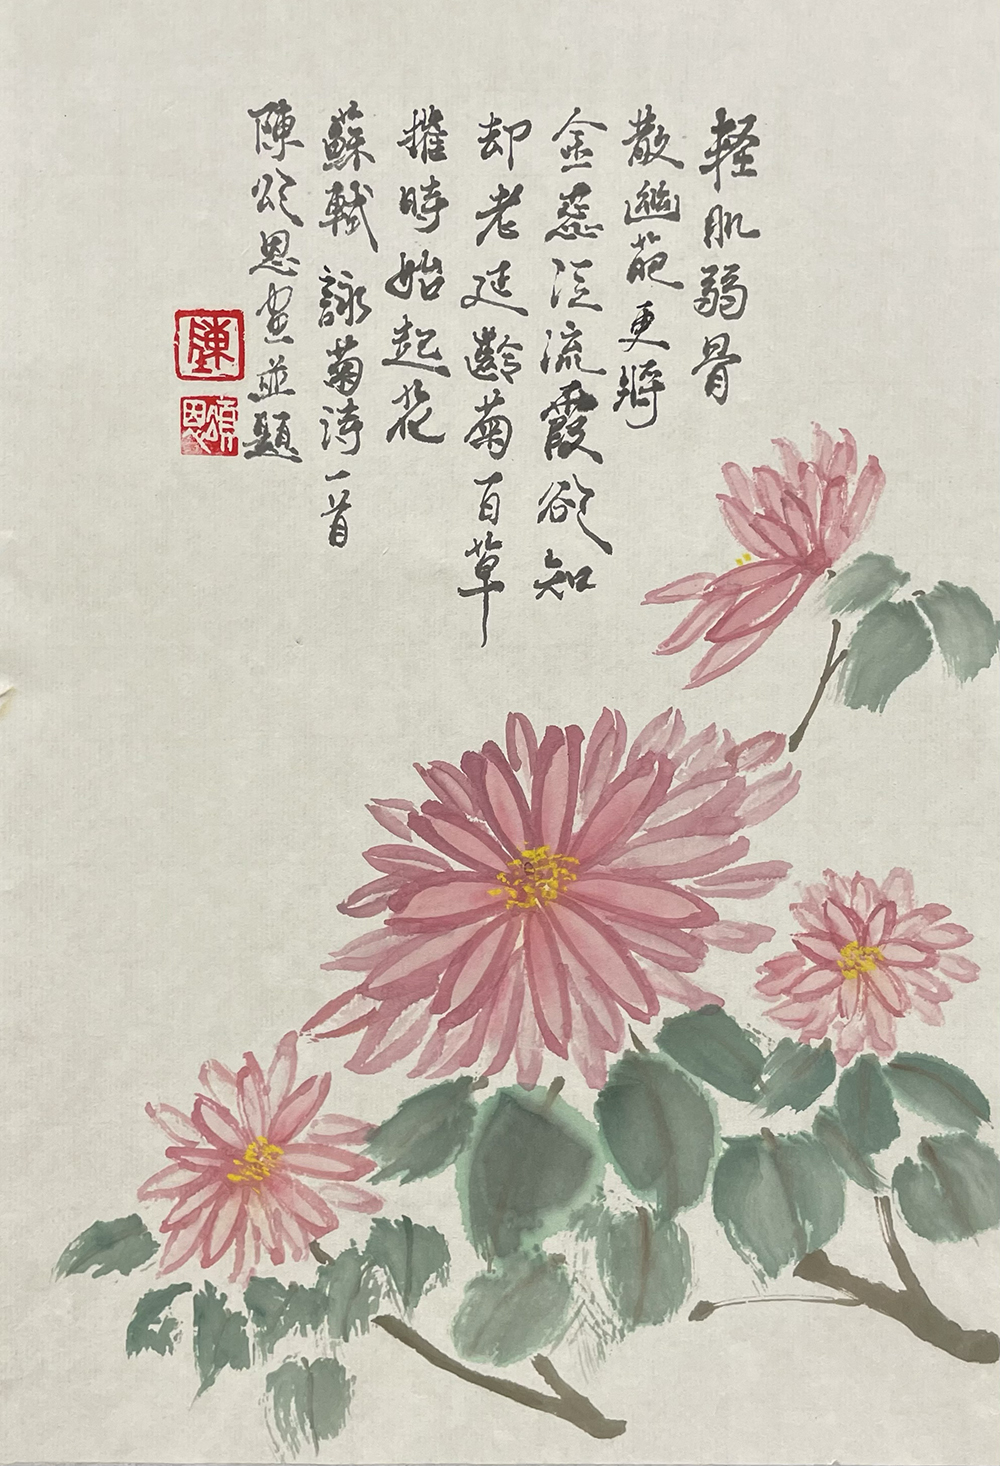 軽肌弱骨
散幽葩更將
金蕊泛流霞欲知
却老延齡菊百草
摧時始起花
蘇軾 詠菊詩一首
陳頌恩畫並題
陳
頌恩